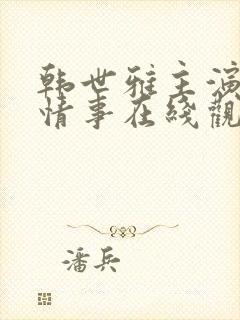 韩世雅主演
情事在线觀
潘兵